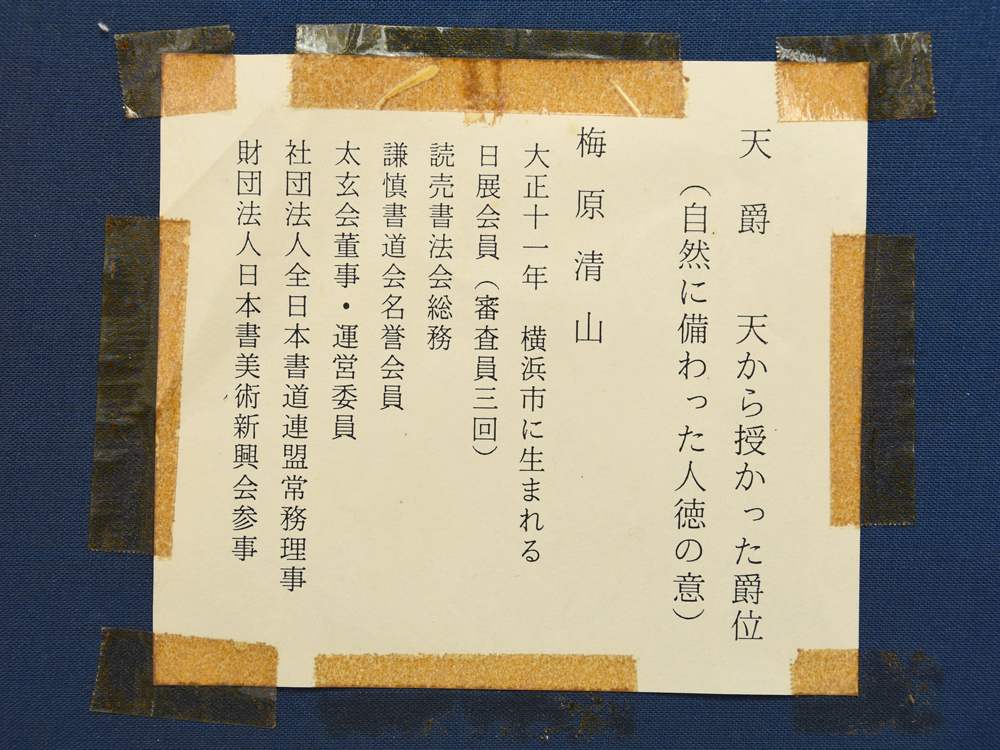 天爵　天から授かった爵位
（自然に備わった人徳の意）
梅原清山
大正十一年　横浜市に生まれる
日展会員（審査員三回）
読売書法会総務
謙慎書道会名誉会員
太玄会董事・運営委員
社団法人全日本書道連盟常務理事
財団法人日本書美術新興会参事